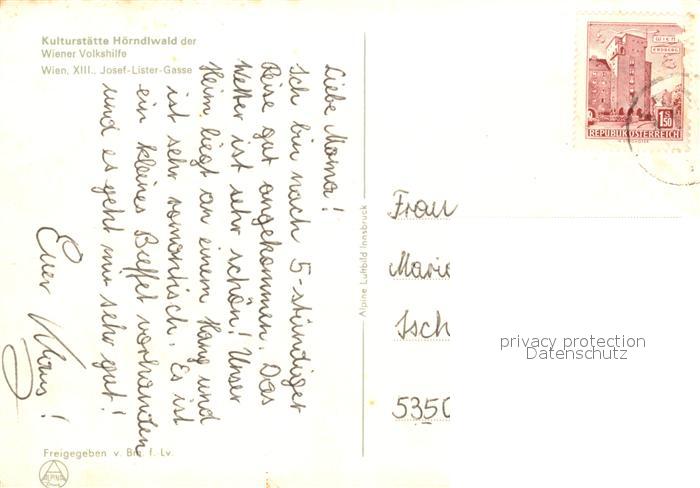 Kulturstätte Hörndlwald der
Wiener Volkshilfe
Wien, XIII., Josef-Lister-Gasse
Liebe Mama!
Ich bin nach 5-stündiger
Reise gut angekommen. Das
Wetter ist sehr schön! Unser
Heim liegt an einem Hang und
ist sehr romantisch. Es ist
ein kleines Büffet vorhanden
und es geht mir sehr gut!
Euer Klaus!
Freigegeben v. Bm. f. Lv.
ALPINE
Alpine Luftbild Innsbruck
WIEN
ERDBERG
1.50 S
REPUBLIK ÖSTERREICH
Frau
Marie
Isch
5350
privacy protection
Datenschutz